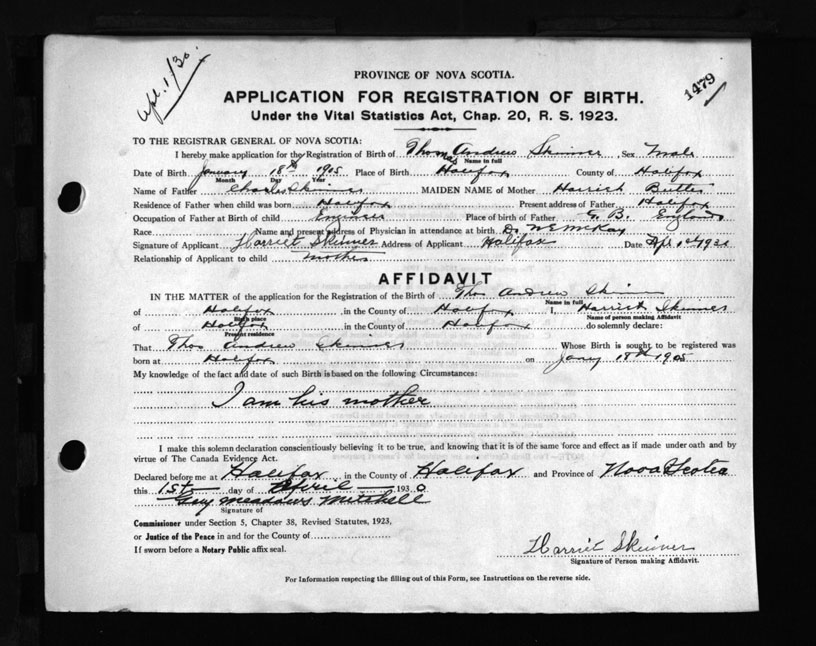 Apl. 1/30.
1479
PROVINCE OF NOVA SCOTIA.
APPLICATION FOR REGISTRATION OF BIRTH.
Under the Vital Statistics Act, Chap. 20, R. S. 1923.
TO THE REGISTRAR GENERAL OF NOVA SCOTIA:
I hereby make application for the Registration of Birth of Thomas Andrew Skinner, Sex Male
Name in full
Date of Birth January 18th 1905 Place of Birth Halifax County of Halifax
Month Day Year
Name of Father Charles Skinner MAIDEN NAME of Mother Harriet Butter
Residence of Father when child was born Halifax Present address of Father Halifax
Occupation of Father at Birth of child Engineer Place of birth of Father G. B. England
Race Name and present address of Physician in attendance at birth. Dr. McKay
Signature of Applicant Harriet Skinner Address of Applicant Halifax Date Apl 1st 1930
Relationship of Applicant to child mother
AFFIDAVIT
IN THE MATTER of the application for the Registration of the Birth of Thos Andrew Skinner
Name in full
of Halifax in the County of Halifax I, Harriet Skinner
Birth place Name of person making Affidavit
of Halifax in the County of Halifax do solemnly declare:
Present residence
That Thos Andrew Skinner Whose Birth is sought to be registered was
born at Halifax on Jany 18th 1905
My knowledge of the fact and date of such Birth is based on the following Circumstances:
I am his mother
I make this solemn declaration conscientiously believing it to be true, and knowing that it is of the same force and effect as if made under oath and by
virtue of The Canada Evidence Act.
Declared before me at Halifax in the County of Halifax and Province of Nova Scotia
this 1st day of April 1930
Guy Meadows Mitchell
Signature of
Commissioner under Section 5, Chapter 38, Revised Statutes, 1923,
or Justice of the Peace in and for the County of
If sworn before a Notary Public affix seal.
Harriet Skinner
Signature of Person making Affidavit.
For Information respecting the filling out of this Form, see Instructions on the reverse side.